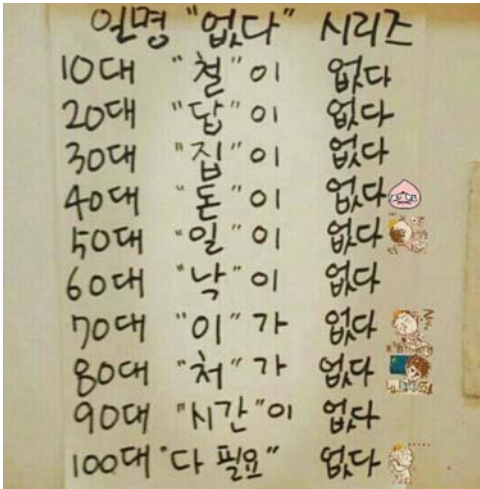 일명 "없다" 시리즈
10대 "철"이 없다
20대 "답"이 없다
30대 "집"이 없다
40대 "돈"이 없다
50대 "일"이 없다
60대 "낙"이 없다
70대 "이"가 없다
80대 "처"가 없다
90대 "시간"이 없다
100대 "다 필요" 없다